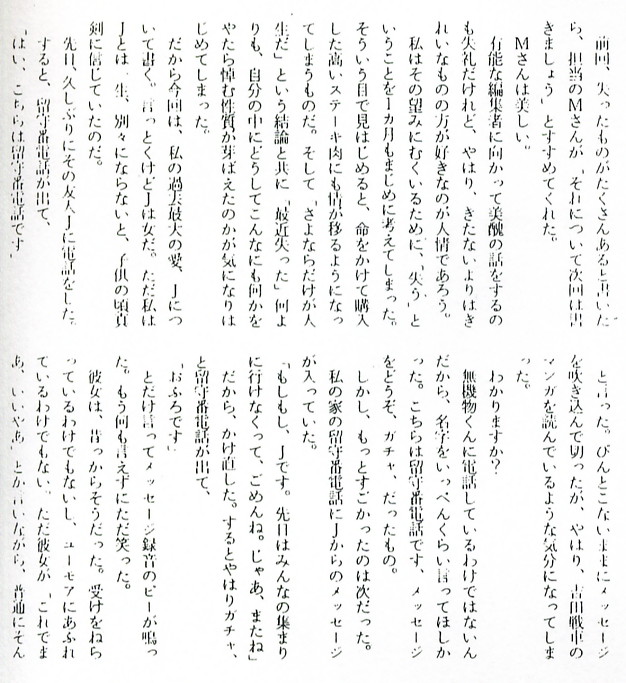 前回、失ったものがたくさんあると書いた
ら、担当のMさんが「それについて次回は書
きましょう」とすすめてくれた。
Mさんは美しい。
有能な編集者に向かって美醜の話をするの
も失礼だけれど、やはり、きたないよりはき
れいなものの方が好きなのが人情であろう。
私はその望みにむくいるために、「失う」と
いうことを1カ月もまじめに考えてしまった。
そういう目で見はじめると、命をかけて購入
した高いステーキ肉にも情が移るようになっ
てしまうものだ。そして「さよならだけが人
生だ」という結論と共に「最近失った」何よ
りも、自分の中にどうしてこんなにも何かを
やたら悼む性質が芽ばえたのかが気になりは
じめてしまった。
だから今回は、私の過去最大の愛、Jにつ
いて書く。言っとくけどJは女だ。ただ私は
Jとは一生、別々にならないと、子供の頃真
剣に信じていたのだ。
先日、久しぶりにその友人Jに電話をした。
すると、留守番電話が出て、
「はい、こちらは留守番電話です」
と言った。ぴんとこないままにメッセージ
を吹き込んで切ったが、やはり、吉田戦車の
マンガを読んでいるような気分になってしま
った。
わかりますか？
無機物くんに電話しているわけではないん
だから、名字をいっぺんくらい言ってほしか
った。こちらは留守番電話です、メッセージ
をどうぞ、ガチャ、だったもの。
しかし、もっとすごかったのは次だった。
私の家の留守番電話にJからのメッセージ
が入っていた。
「もしもし、Jです。先日はみんなの集まり
に行けなくって、ごめんね。じゃあ、またね」
だから、かけ直した。するとやはりガチャ、
と留守番電話が出て、
「おふろです」
とだけ言ってメッセージ録音のピーが鳴っ
た。もう何も言えずにただ笑った。
彼女は、昔っからそうだった。受けをねら
っているわけでもないし、ユーモアにあふれ
ているわけでもない。ただ彼女が「これでま
あ、いいやあ」とか言いながら、普通にそん